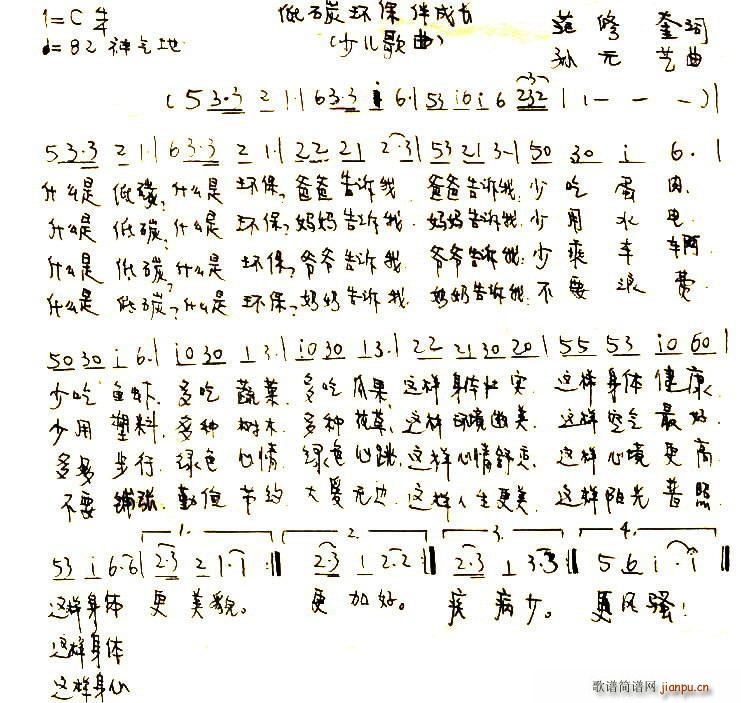 低碳环保伴成长
(少儿歌曲)
1=C
♩=82 神气地
范修奎词
孙元艺曲
(5 3·3 2 1·| 6 3·3 i 6·| 53 i0 i 6 232 | 1 — — — )|
5 3·3 2 1·| 6 3·3 2 1·| 22 21 2·3| 53 21 3·| 50 30 i 6·|
什么是 低碳?什么是 环保?爸爸告诉我 爸爸告诉我:少 吃 蛋 肉.
什么是 低碳?什么是 环保?妈妈告诉我 妈妈告诉我:少 用 水 电
什么是 低碳?什么是 环保?爷爷告诉我 爷爷告诉我:少 乘 车 辆
什么是 低碳?什么是 环保?奶奶告诉我 奶奶告诉我:不 要 浪 费
50 30 i 6·| i0 30 1 3·| i0 30 1 3·| 22 21 30 20| 55 53 i0 60|
少吃 鱼虾. 多吃 蔬菜. 多吃 瓜果.这样 身体壮实 这样身体 健康.
少用 塑料. 多种 树木. 多种 花草.这样 环境幽美. 这样空气 最好.
多多 步行. 绿色 心情. 绿色 心跳.这样心情舒爽. 这样心境 更 高
不要 铺张. 勤俭 节约. 大爱无边.这样人生更美. 这样阳光 普照
1. 2. 3. 4.
53 i 6·6| 2·3 2 1·1 :‖ 2·3 1 2·2 :‖ 2·3 1 3·3 :‖ 5 6 i · i ‖
这样身体 更 美貌。 更 加好。 疾 病少。 更风骚!
这样身体
这样身心
歌谱简谱网 jianpu.cn